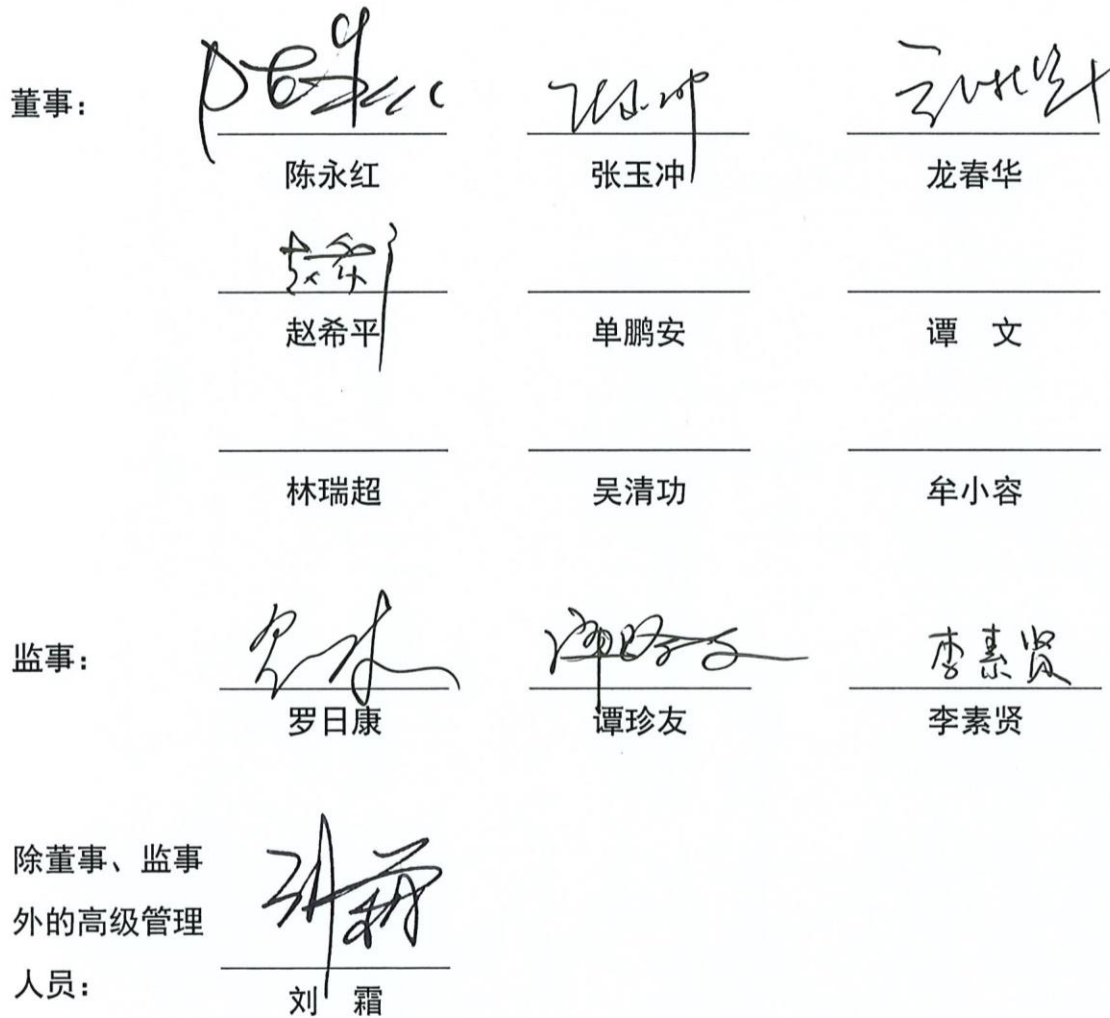 董事：
陈永红 张玉冲 龙春华
赵希平 单鹏安 谭 文
林瑞超 吴清功 牟小容
监事：
李素贤
罗日康 谭珍友 李素贤
除董事、监事
外的高级管理
人员：
刘 霜